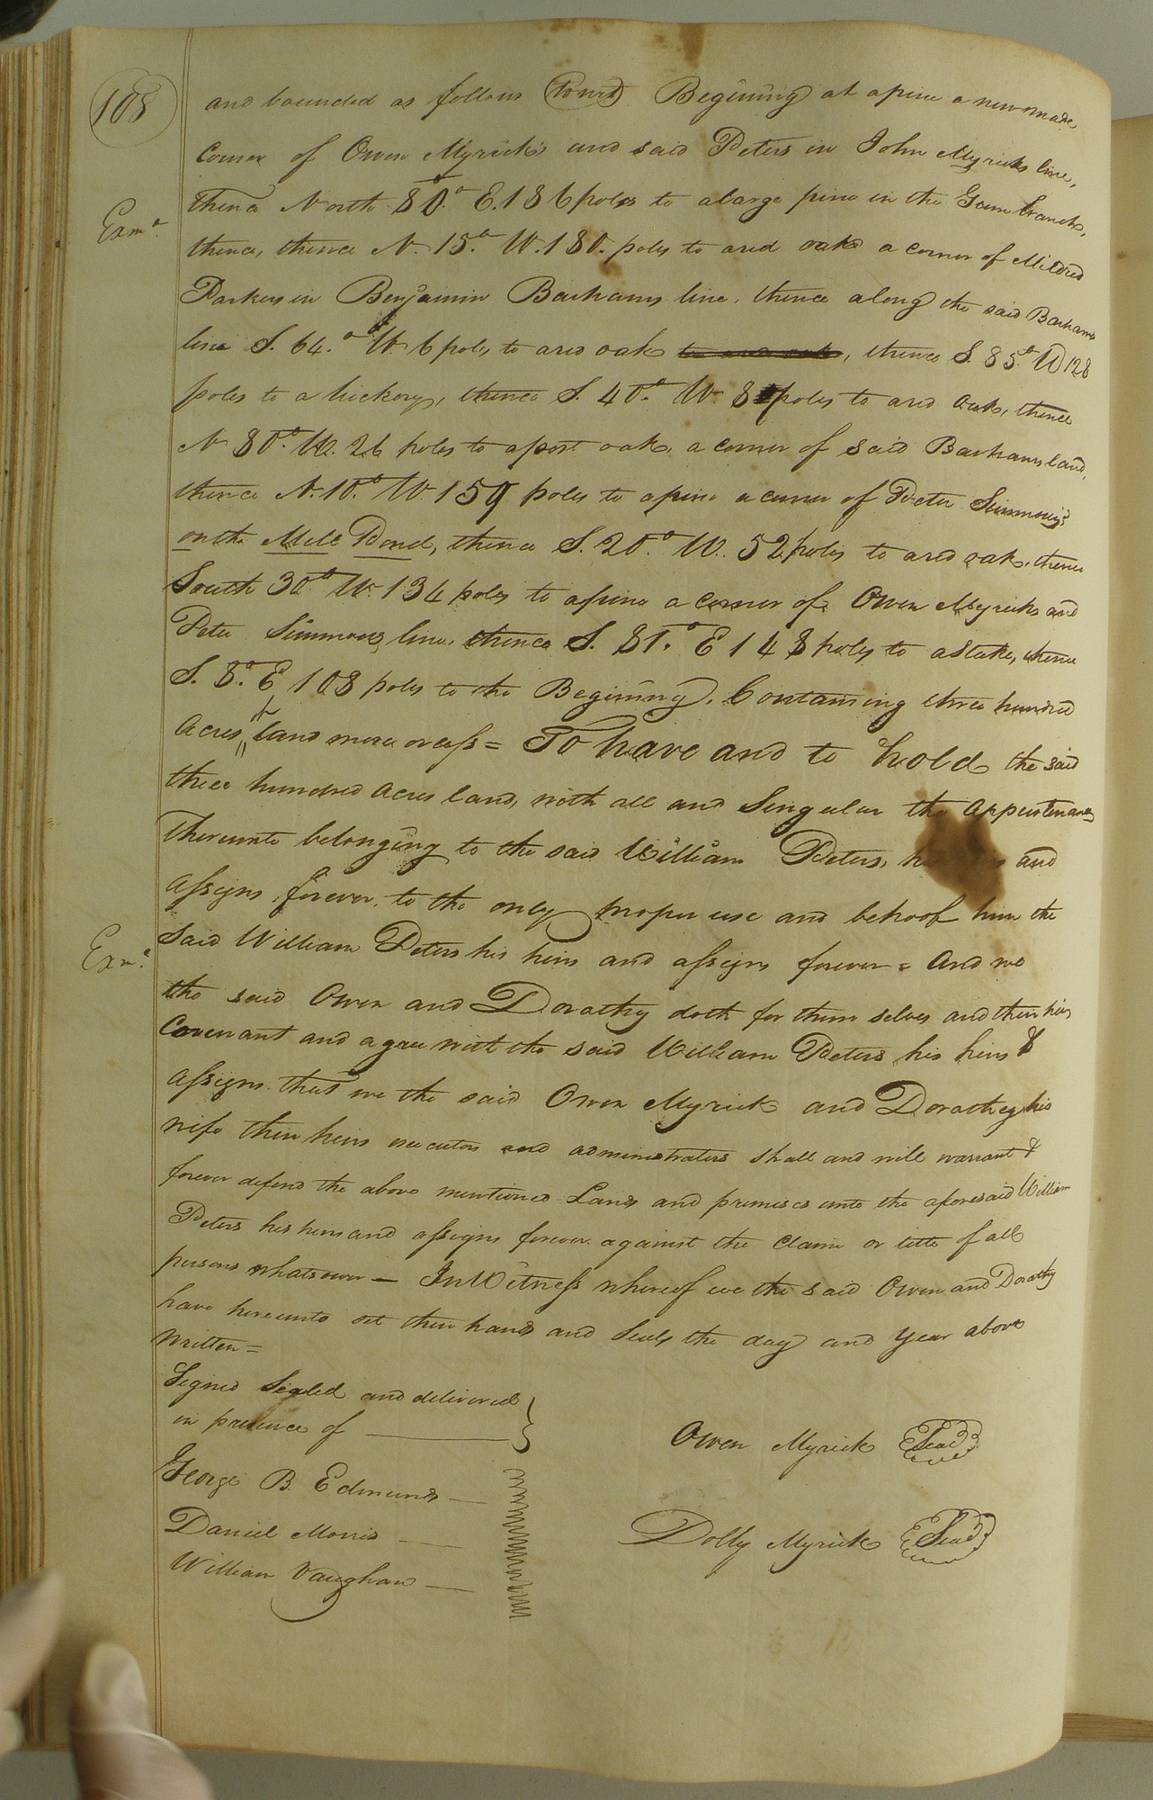 108
and bounded as follows (Towit) Begining at a pine a new made
Corner of Owen Myrick's and said Peters in John Myricks line,
thence North 80.° E. 186 poles to a large pine in the Gum branch,
Exm.d
thence, thence N. 15.° W. 180. poles to a red oak a corner of Mildred
Parkers in Benjamin Barhams line, thence along the said Barhams
line S. 64.° W 6 poles to a red oak to a red oak, thence S. 85.° W 128
poles to a hickory, thence S. 40.° W. 8 poles to a red oak, thence
N 80.° W. 26 poles to a post oak, a corner of said Barhams land,
thence N. 10.° W 159 poles to a pine a corner of Peter Simmons's
on the Mill Pond, thence S. 20.° W. 52 poles to a red oak, thence
South 30.° W. 134 poles to a pine a corner of Owen Myricks and
Peter Simmons, line, thence S. 81.° E 148 poles to a Stake, thence
S. 8.° E 108 poles to the Begining, Containing three hundred
Acres of land more or less = To have and to hold the said
three hundred acres land, with all and Singular the appurtenances
Thereunto belonging to the said William Peters, and
assigns forever, to the only proper use and behoof him the
Said William Peters his heirs and assigns forever = And we
Exm.d
the said Owen and Dorathy doth for them selves and their heirs
Covenant and agree with the said William Peters his heirs &
assigns that we the said Owen Myrick and Dorathy his
wife their heirs executors and administrators shall and will warrant &
forever defend the above mentioned Land and premises unto the aforesaid William
Peters his heirs and assigns forever against the Claim or title of all
persons whatsoever — In Witness whereof we the said Owen and Dorathy
have hereunto set their hands and Seals the day and Year above
Written =
Signed Sealed and delivered
in presence of
Owen Myrick Seal
George B. Edmunds
Daniel Morris
Dolly Myrick Seal
William Vaughan